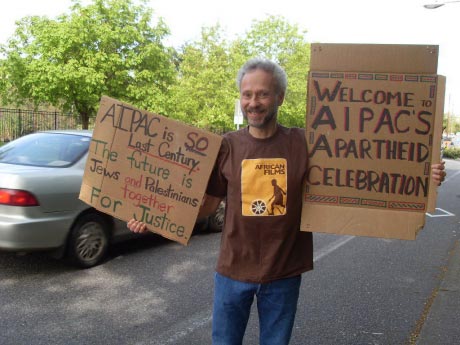 AIPAC is SO
Last Century.
The future is
Jews and Palestinians
together
For Justice
AFRICAN
FILMS
WELCOME TO
AIPAC'S
APARTHEID
CELEBRATION